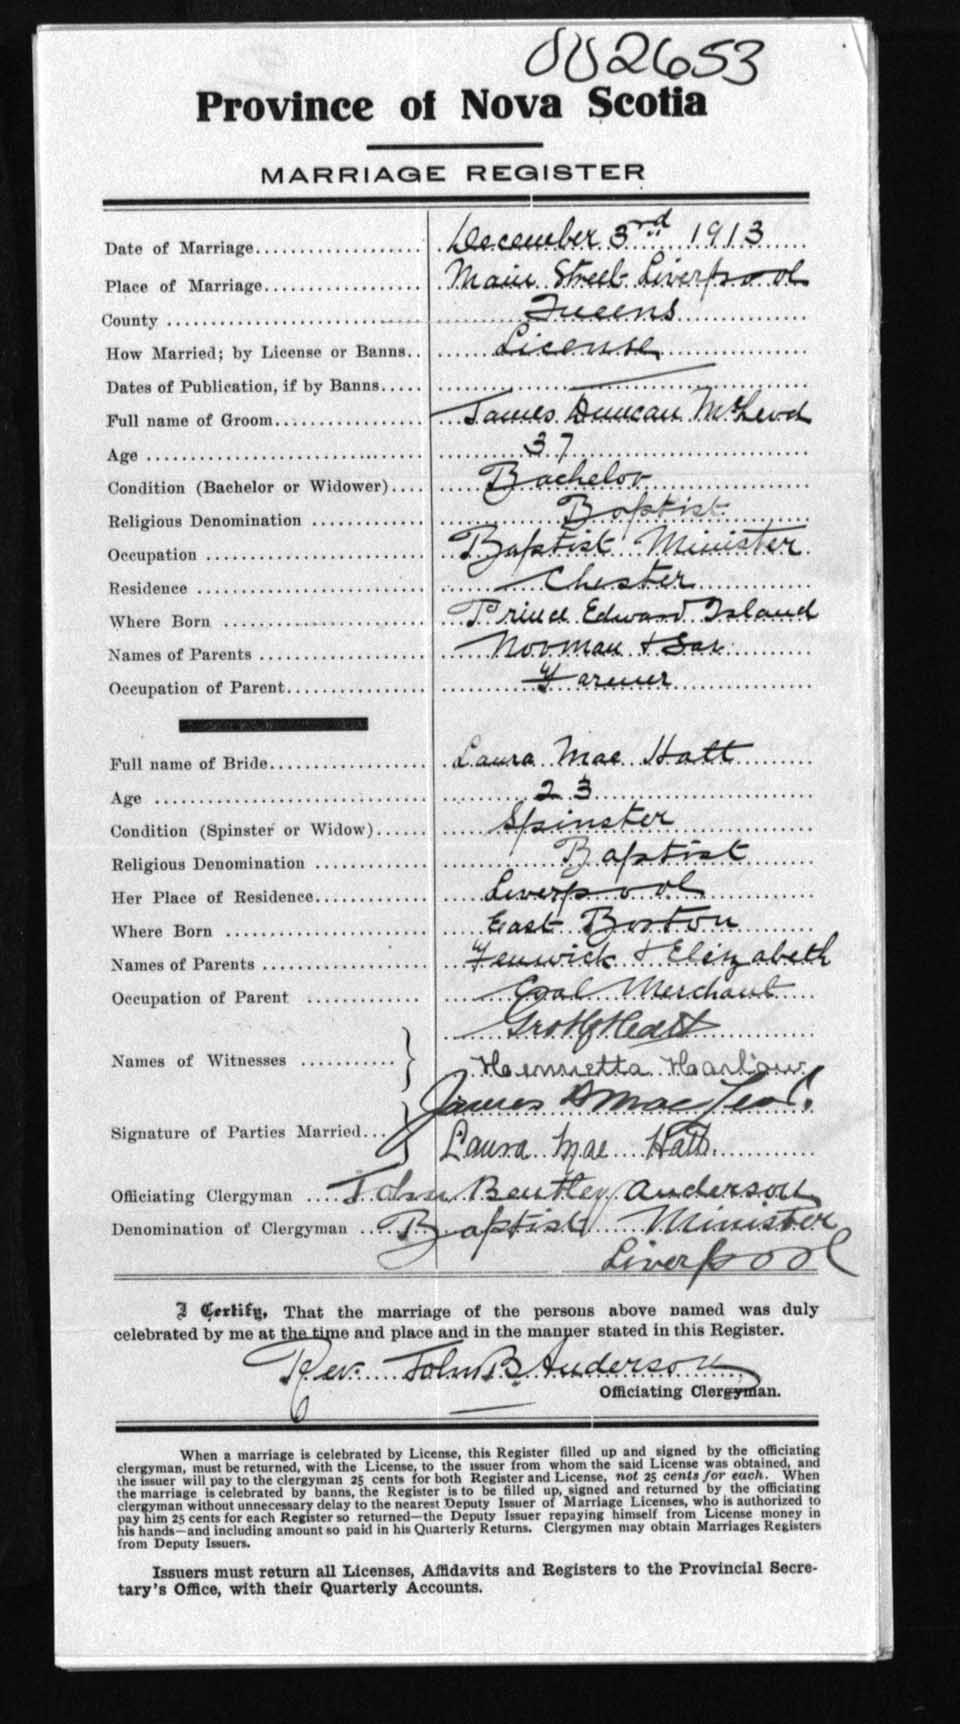 002653
Province of Nova Scotia
MARRIAGE REGISTER
Date of Marriage.................... December 3rd 1913
Place of Marriage................... Main Street Liverpool
County .............................. Queens
How Married; by License or Banns.. License
Dates of Publication, if by Banns.....
Full name of Groom.................. James Duncan McLeod
Age ................................ 37
Condition (Bachelor or Widower).... Bachelor
Religious Denomination ............. Baptist
Occupation ......................... Baptist Minister
Residence .......................... Chester
Where Born ........................ Prince Edward Island
Names of Parents ................... Norman & Sar
Occupation of Parent................ Farmer
Full name of Bride.................. Laura Mae Hatt
Age ................................ 23
Condition (Spinster or Widow)...... Spinster
Religious Denomination ............. Baptist
Her Place of Residence............. Liverpool
Where Born ........................ East Boston
Names of Parents ................... Fenwick & Elizabeth
Occupation of Parent .............. Coal Merchant
Names of Witnesses ...........
Henrietta Harlow
James D MacLeod.
Signature of Parties Married...
Laura Mae Hatt.
Officiating Clergyman .... John Bentley Anderson
Denomination of Clergyman ... Baptist Minister
Liverpool
I Certify, That the marriage of the persons above named was duly
celebrated by me at the time and place and in the manner stated in this Register.
Rev. John B. Anderson
Officiating Clergyman.
When a marriage is celebrated by License, this Register filled up and signed by the officiating
clergyman, must be returned, with the License, to the issuer from whom the said License was obtained, and
the issuer will pay to the clergyman 25 cents for both Register and License, not 25 cents for each. When
the marriage is celebrated by banns, the Register is to be filled up, signed and returned by the officiating
clergyman without unnecessary delay to the nearest Deputy Issuer of Marriage Licenses, who is authorized to
pay him 25 cents for each Register so returned—the Deputy Issuer repaying himself from License money in
his hands—and including amount so paid in his Quarterly Returns. Clergymen may obtain Marriages Registers
from Deputy Issuers.
Issuers must return all Licenses, Affidavits and Registers to the Provincial Secre-
tary's Office, with their Quarterly Accounts.